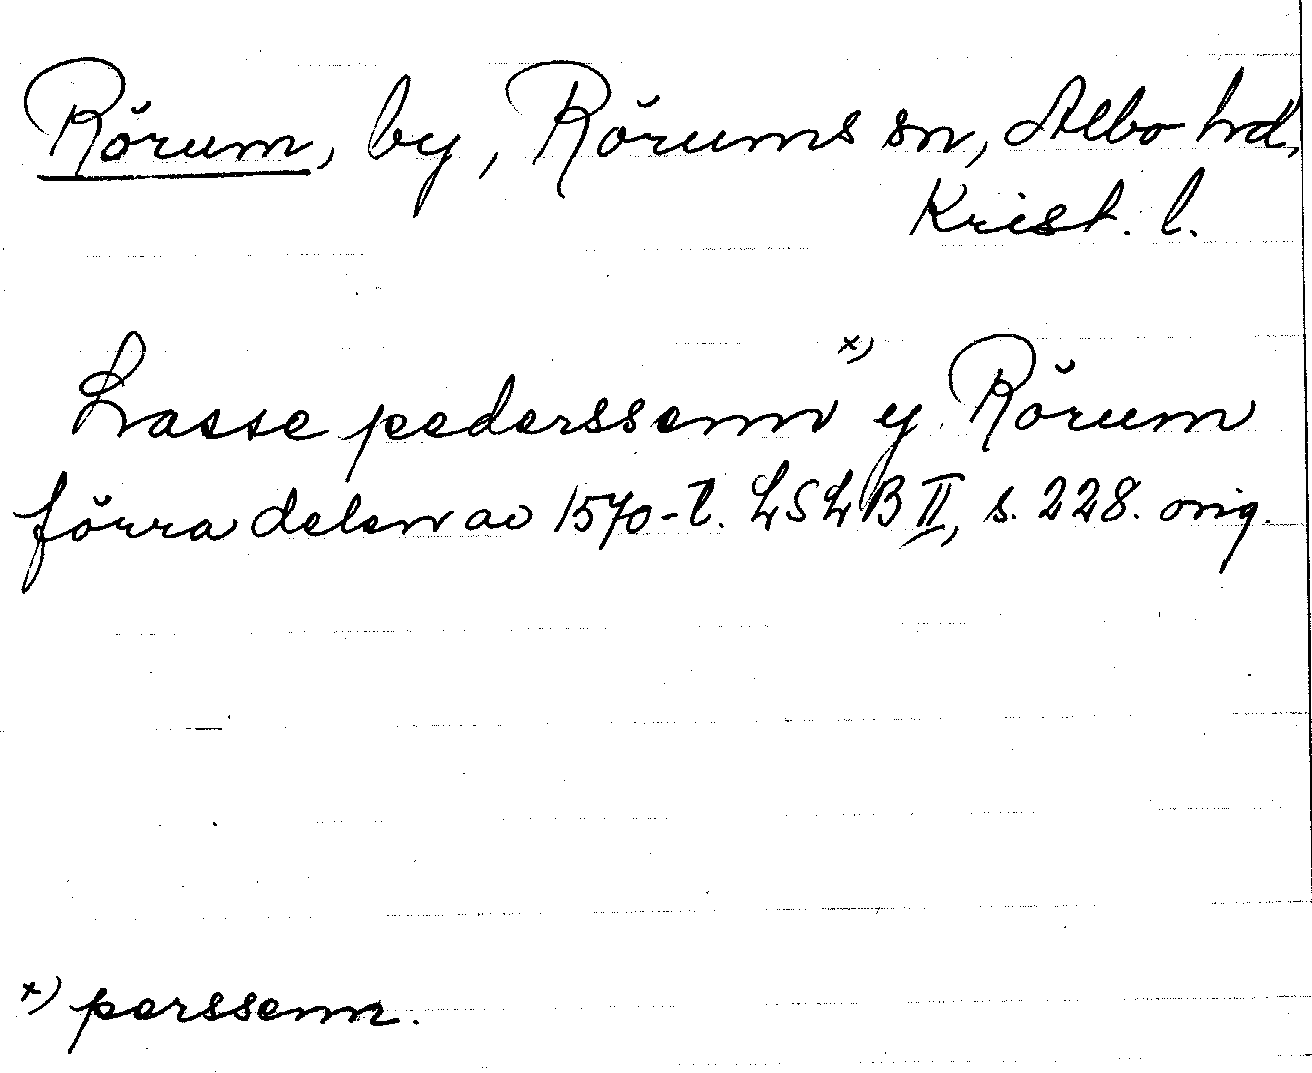 Rörum, by, Rörums sn, Albo hrd,
Krist. l.
Lasse pederssenn x) y Rörum
förra delen av 1570-t. LSLB II, s. 228. orig.
x) perssenn.